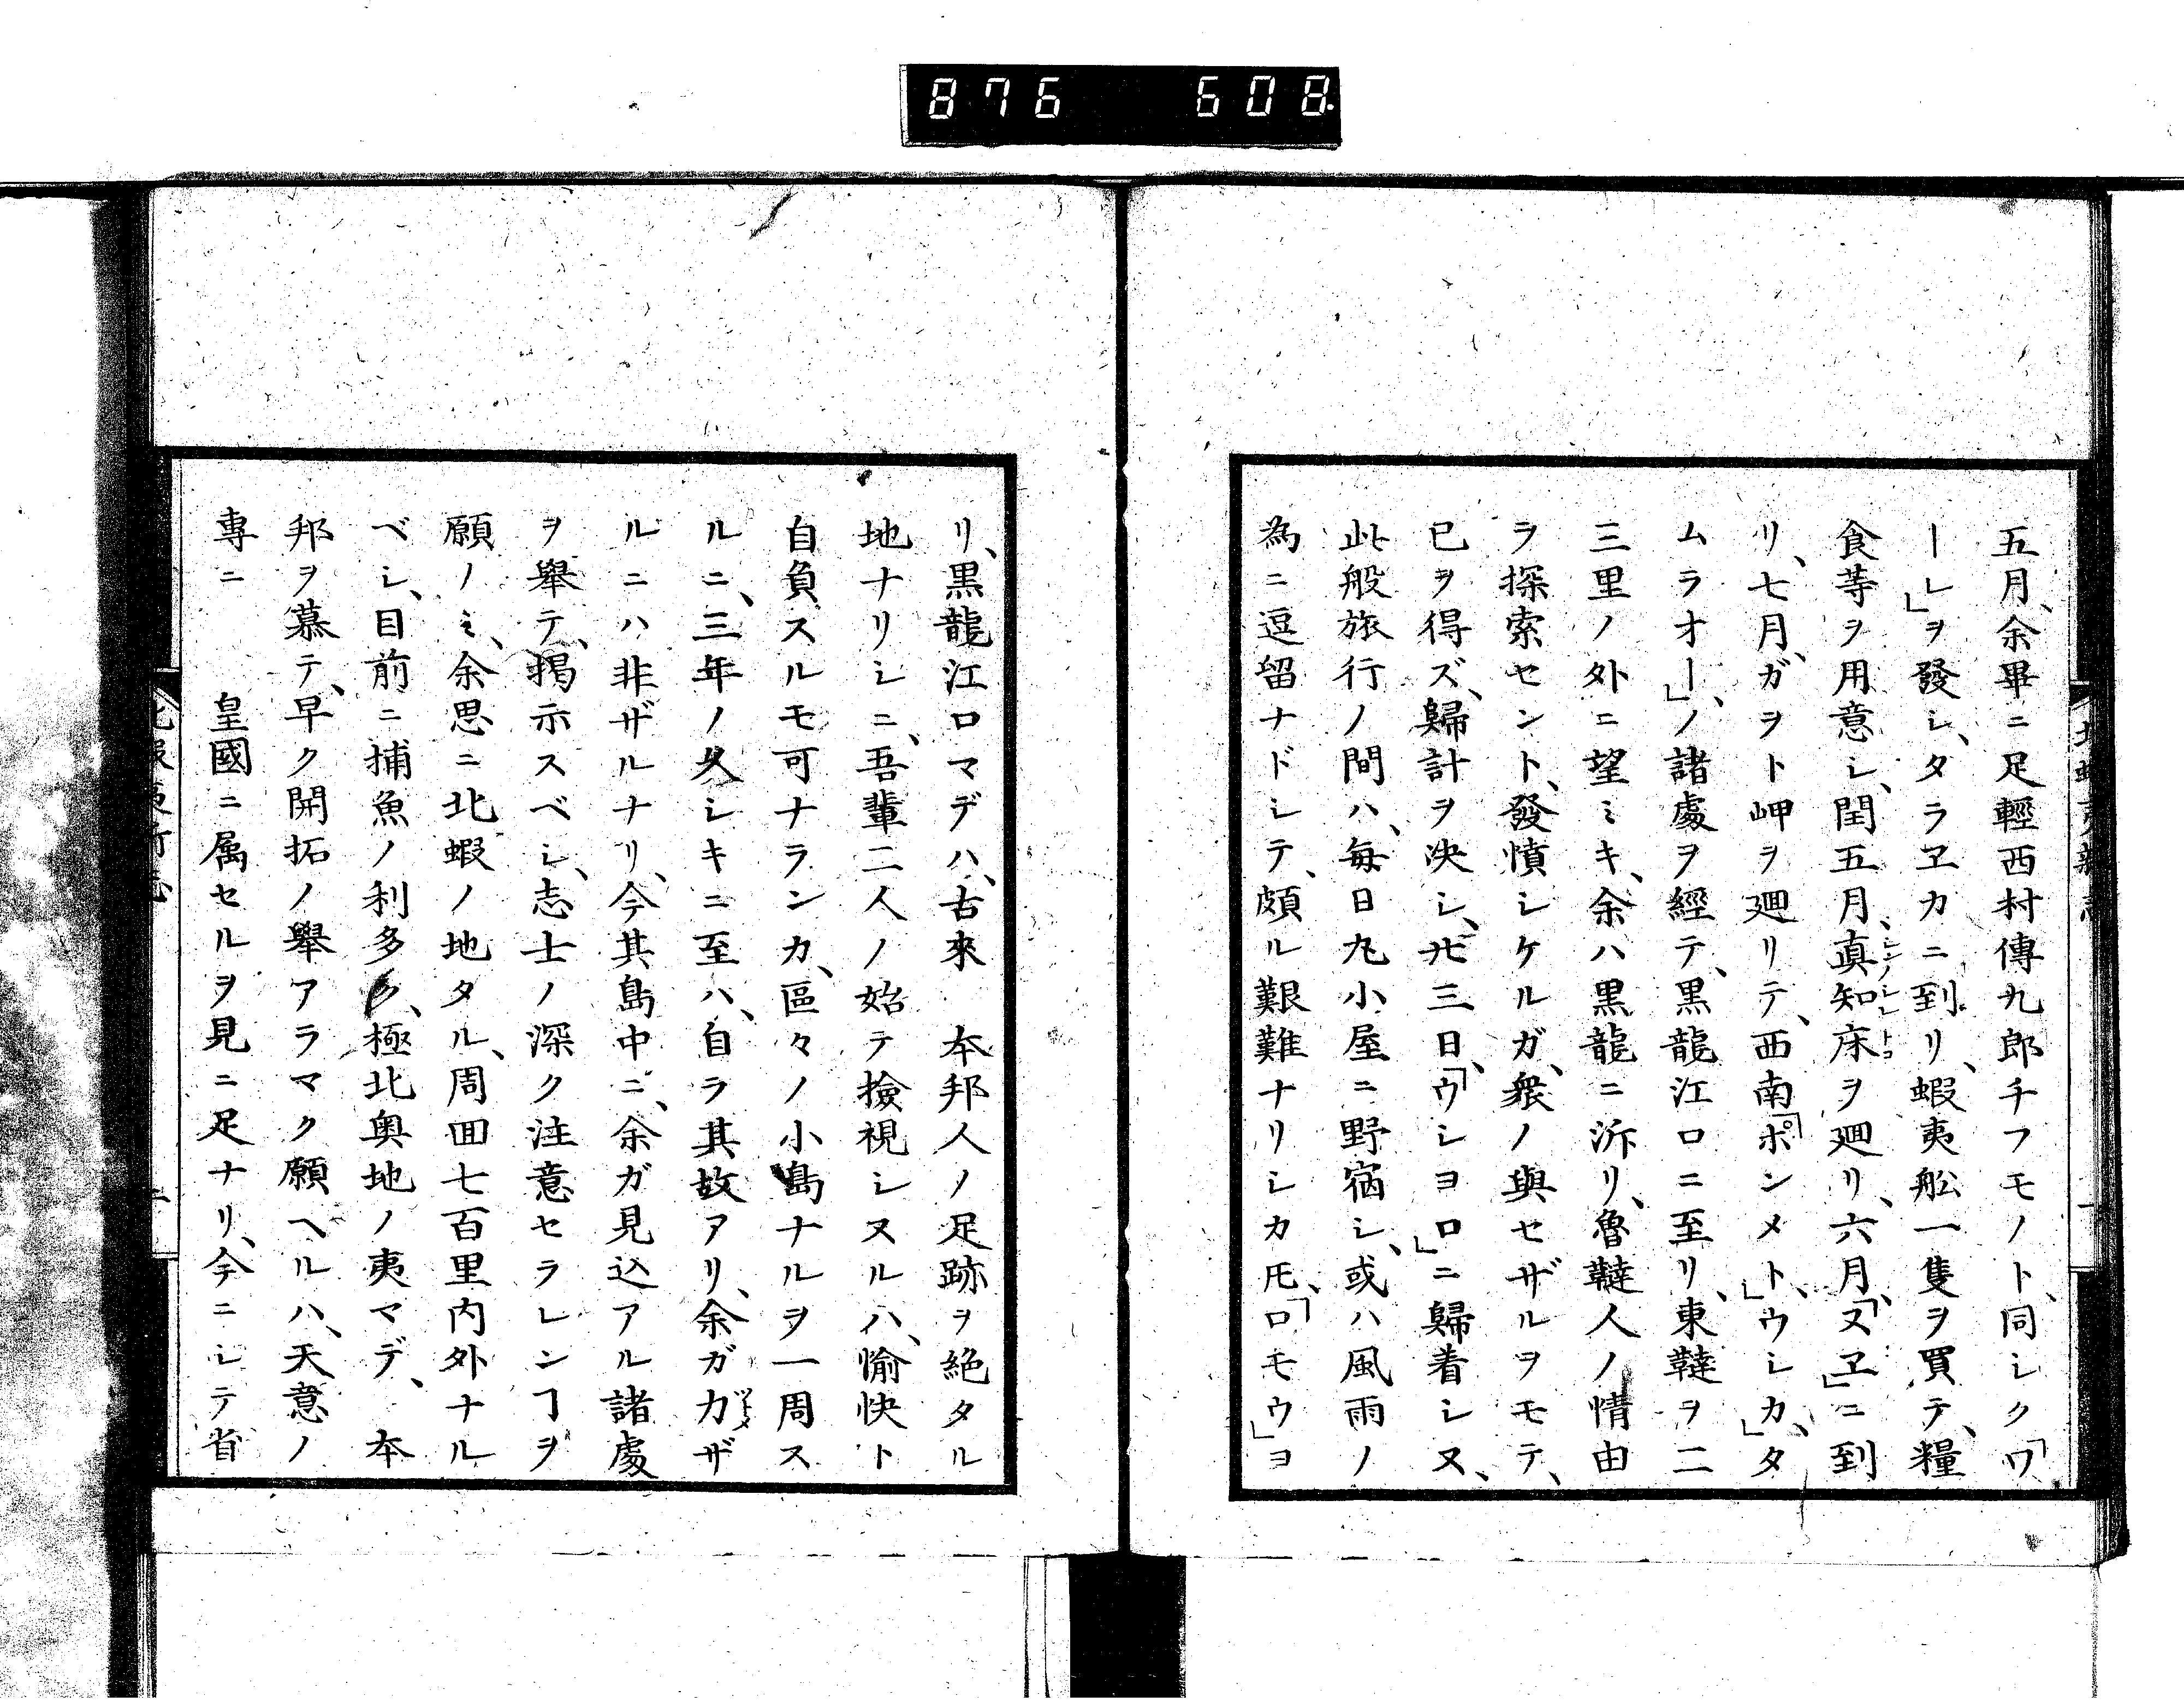 876 608
五月、余畢ニ足輕西村傳九郎チフモノト、同シク「ワ
ーレ」ヲ發シ、タラヱカニ到リ、蝦夷舩一隻ヲ買テ、糧
食等ヲ用意シ、閏五月、真知床ヲ廻リ、六月、「ヌヱ」ニ到
リ、七月、ガヲト岬ヲ廻リテ、西南「ポンメト」、ウシカ」、タ
ムラオー」、ノ諸處ヲ經テ、黒龍江口ニ至リ、東韃ヲ二
三里ノ外ニ望ミキ、余ハ黒龍ニ泝リ、魯韃人ノ情由
ヲ探索セント、發憤シケルガ、衆ノ與セザルヲモテ、
已ヲ得ズ、歸計ヲ決シ、廿三日、「ウショロ」ニ歸着シヌ、
此般旅行ノ間ハ、毎日丸小屋ニ野宿シ、或ハ風雨ノ
為ニ逗留ナドシテ、頗ル艱難ナリシカ𪜈、「ロモウ」ヨ
リ、黒龍江口マデハ、古來 本邦人ノ足跡ヲ絶タル
地ナリシニ、吾輩二人ノ始テ撿視シヌルハ、愉快ト
自負スルモ可ナランカ、區々ノ小島ナルヲ一周ス
ルニ、三年ノ久シキニ至ハ、自ラ其故アリ、余ガカザ
ルニハ非ザルナリ、今其島中ニ、余ガ見込アル諸處
ヲ舉テ、掲示スベシ、志士ノ深ク注意セラレンヿヲ
願ノミ、余思ニ北蝦ノ地タル、周囬七百里内外ナル
ベシ、目前ニ捕魚ノ利多ク、極北奥地ノ夷マデ、 本
邦ヲ慕テ、早ク開拓ノ舉アラマク願ヘルハ、天意ノ
専ニ 皇國ニ属セルヲ見ニ足ナリ、今ニシテ省